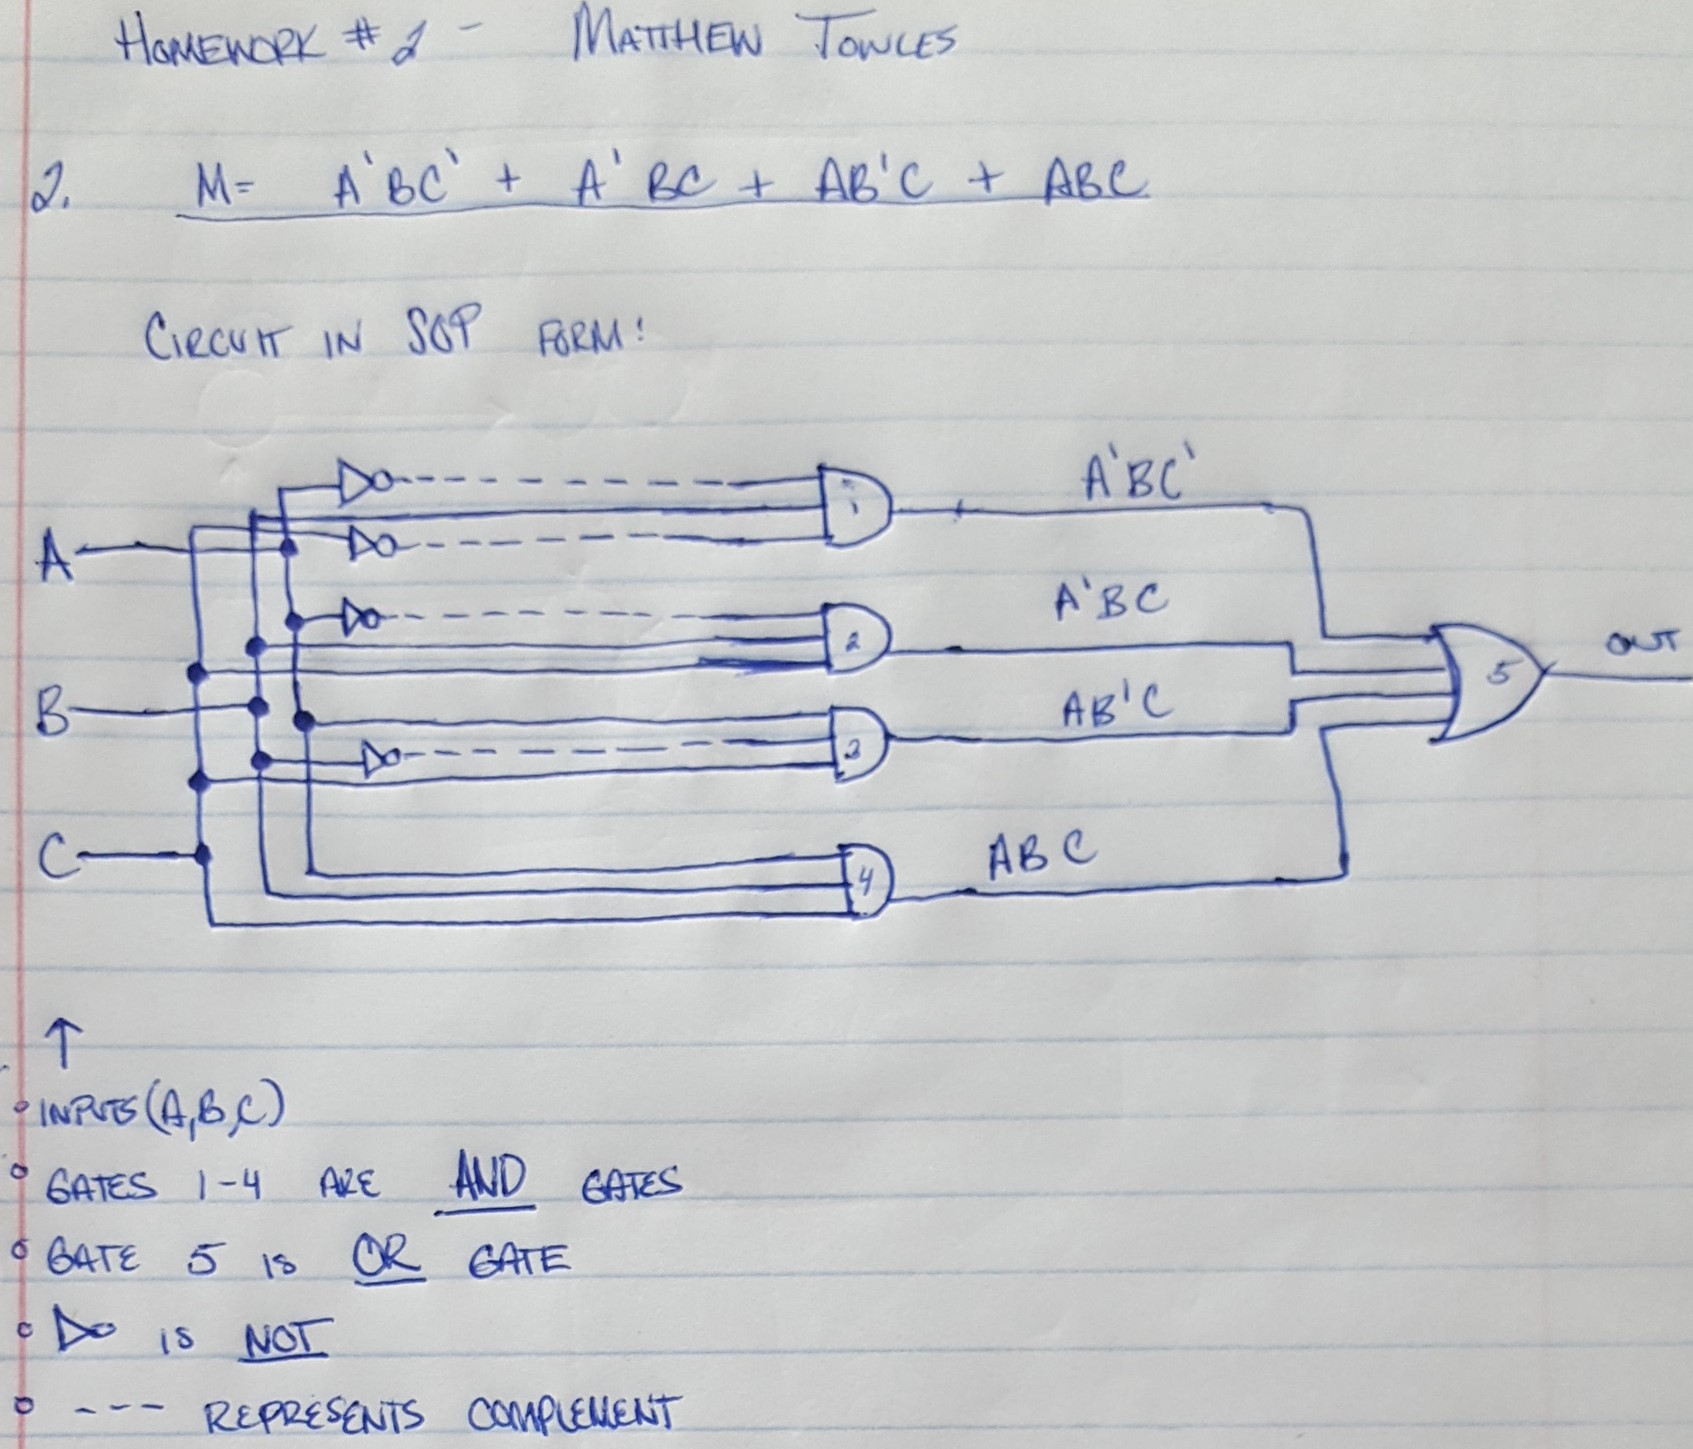 HOMEWORK # 2 - MATTHEW TOWLES
2. M= A'BC' + A'BC + AB'C + ABC
CIRCUIT IN SOP FORM:
A'BC'
1
A
A'BC
2
OUT
5
B
AB'C
3
C
ABC
4
↑
INPUTS (A,B,C)
GATES 1-4 ARE AND GATES
GATE 5 IS OR GATE
IS NOT
--- REPRESENTS COMPLEMENT